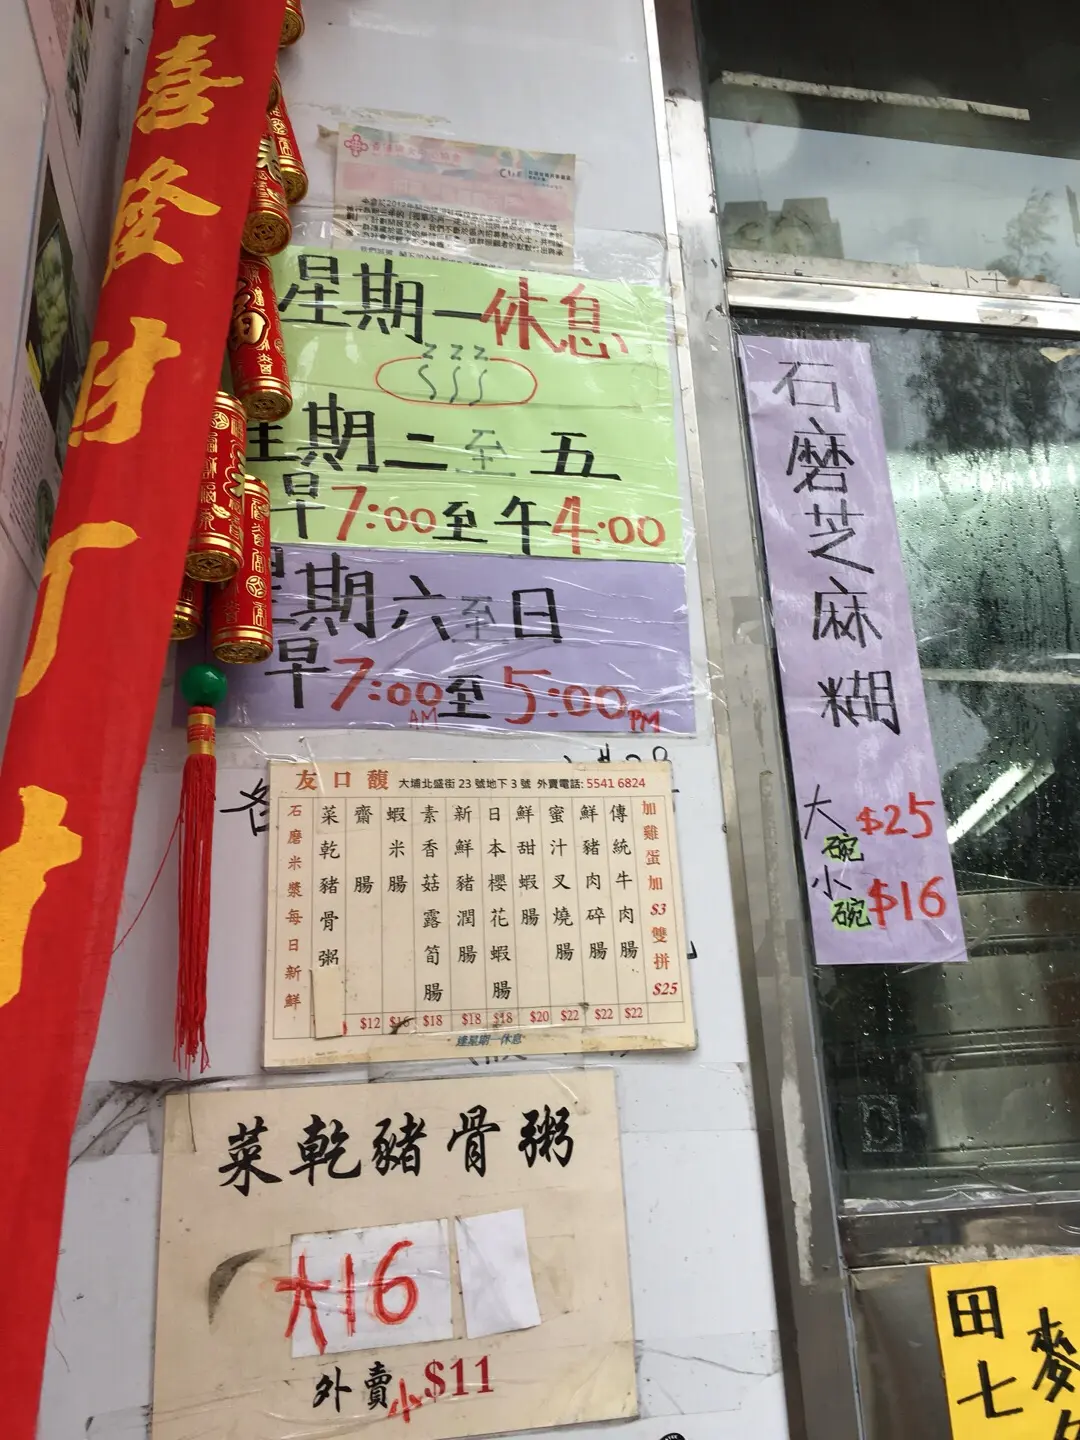 喜隆財
星期一休息
z z z
星期二至五
早7:00至午4:00
星期六至日
早7:00至5:00
AM PM
石磨芝麻糊
大碗$25
小碗$16
友口馥 大埔北盛街23號地下3號 外賣電話: 5541 6824
石磨米漿每日新鮮
菜乾豬骨粥
齋腸 $12
蝦米腸 $16
素香菇露筍腸 $18
新鮮豬潤腸 $18
日本櫻花蝦腸 $18
鮮甜蝦腸 $20
蜜汁叉燒腸 $22
鮮豬肉碎腸 $22
傳統牛肉腸 $22
加雞蛋加$3雙拼$25
逢星期一休息
菜乾豬骨粥
大16
外賣小$11
田七
麥